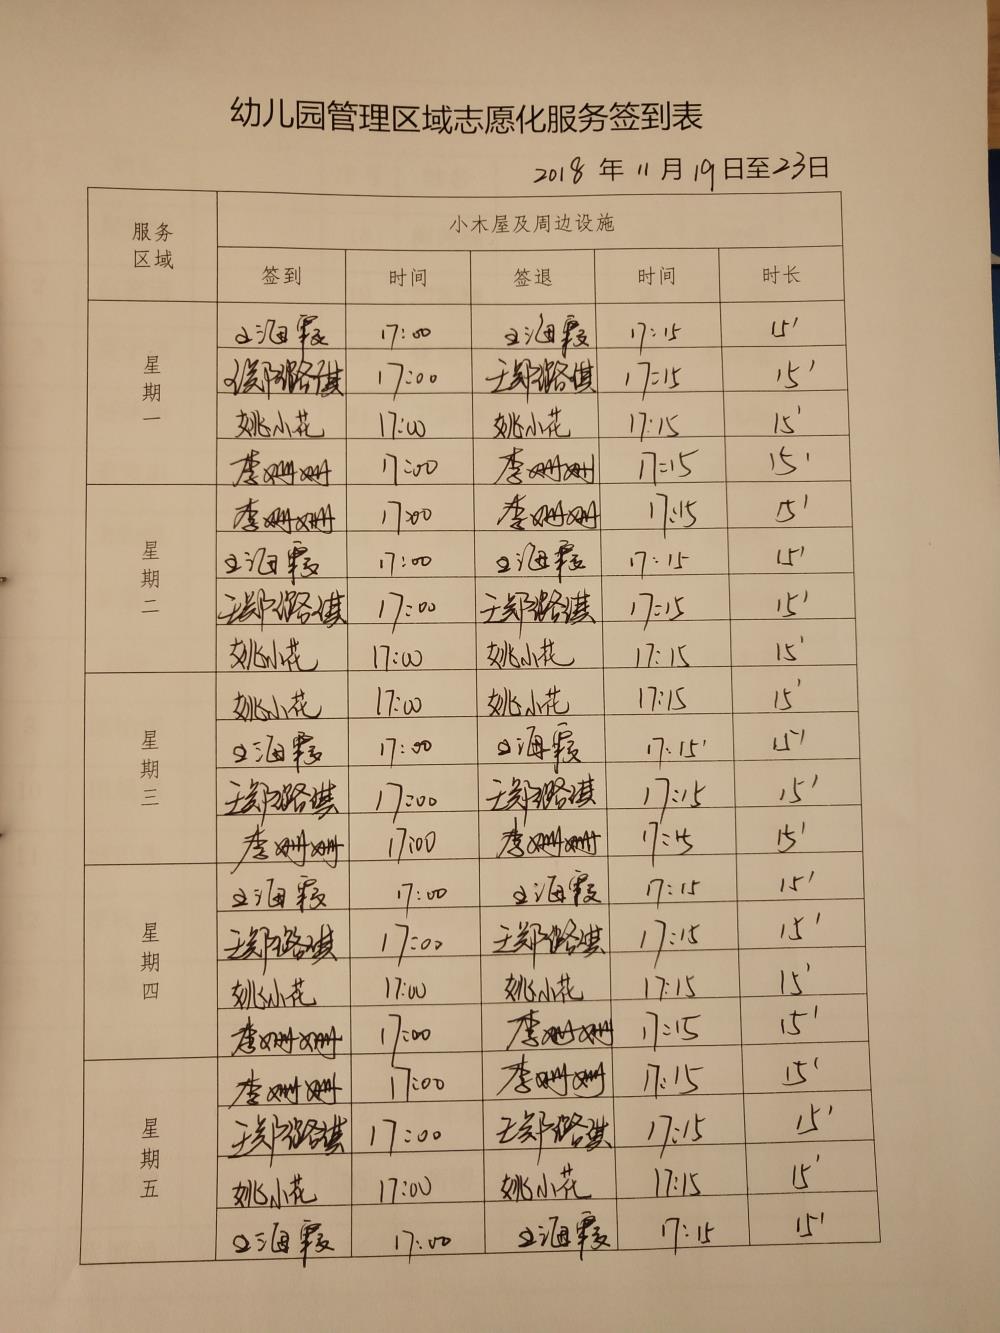 幼儿园管理区域志愿化服务签到表
2018 年 11 月 19 日至 23 日
服务区域 小木屋及周边设施
签到 时间 签退 时间 时长
星期一
王海霞 17:00 王海霞 17:15 15'
王郑璐琪 17:00 王郑璐琪 17:15 15'
姚小花 17:00 姚小花 17:15 15'
李姗姗 17:00 李姗姗 17:15 15'
星期二
李姗姗 17:00 李姗姗 17:15 15'
王海霞 17:00 王海霞 17:15 15'
王郑璐琪 17:00 王郑璐琪 17:15 15'
姚小花 17:00 姚小花 17:15 15'
星期三
姚小花 17:00 姚小花 17:15 15'
王海霞 17:00 王海霞 17:15' 15'
王郑璐琪 17:00 王郑璐琪 17:15 15'
李姗姗 17:00 李姗姗 17:15 15'
星期四
王海霞 17:00 王海霞 17:15 15'
王郑璐琪 17:00 王郑璐琪 17:15 15'
姚小花 17:00 姚小花 17:15 15'
李姗姗 17:00 李姗姗 17:15 15'
星期五
李姗姗 17:00 李姗姗 17:15 15'
王郑璐琪 17:00 王郑璐琪 17:15 15'
姚小花 17:00 姚小花 17:15 15'
王海霞 17:00 王海霞 17:15 15'